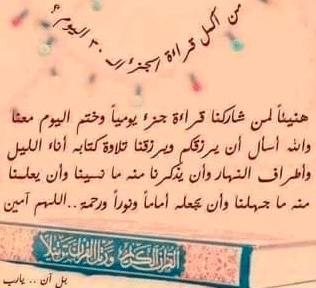 من أكمل قراءة الجزء الـ ٣٠ اليوم؟
هنيئاً لمن شاركنا قراءة جزء يومياً وختم اليوم معنا
والله أسأل أن يرزقكم ويرزقنا تلاوة كتابه أناء الليل
وأطراف النهار وأن يذكرنا منه ما نسينا وأن يعلمنا
منه ما جهلنا وأن يجعله أماماً ونوراً ورحمة..اللهم آمين
ورتل القرآن ترتيلا